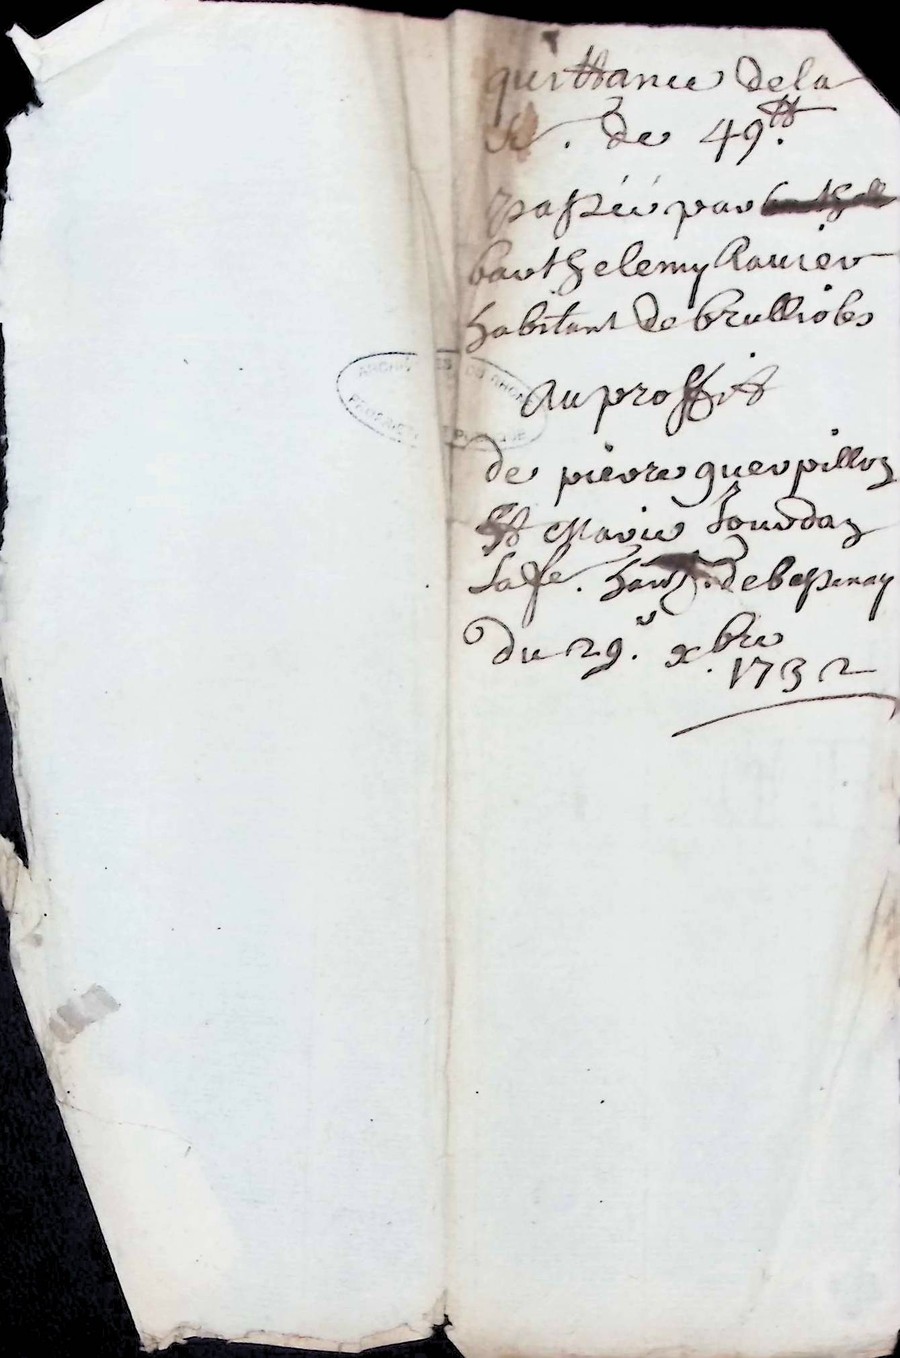 quittance de la
S. de 49 ᵗᵗ.
passéé par
barthelemy Ravier
habitant de brullioles
Au proffit
de pierre guerpilloz
Et Marie Jourdaz
Sa fe. hans. de bessenay
du 29.ᵉ xbre
1732
ARCHIVES DU RHONE
PROPRIETE PUBLIQUE